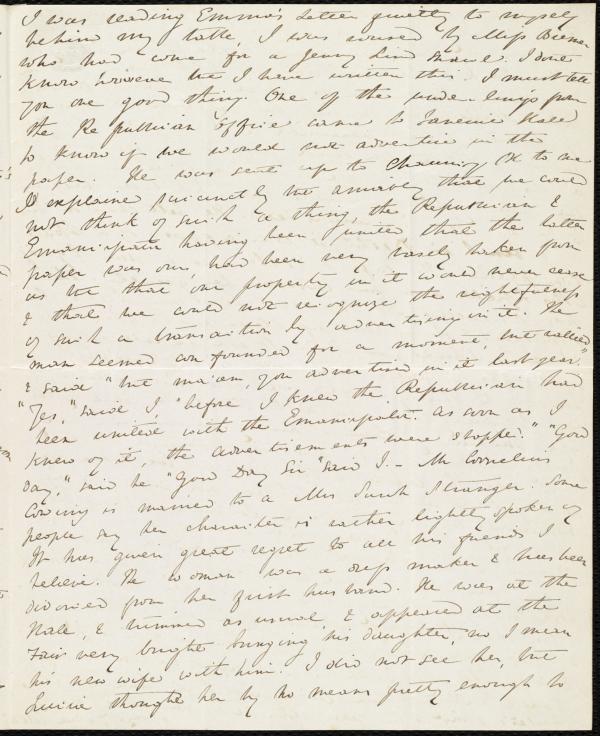 I was reading Emma's letter quietly to myself
behind my table, I was roused by Miss
who had come for a Jenny Lind I dont
know however that I have written this. I must tell
you one good thing. One of the underlings from
the Republican office came to Faneuil Hall
to know if we would not advertise in the
paper. He was sent up to Channing & to me
I explained succinctly but amiably that we could
not think of such a thing, the Republican &
Emancipator having been united that the latter
paper was ours, had been very basely taken from
us but that our property in it would never cease
& that we could not recognize the rightfulness
of such a transaction by advertising in it. The
man seemed confounded for a moment, but rallied
& said "but ma'am, you advertised in it last year."
"Yes," said I, "before I knew the Republican had
been united with the Emancipator. As soon as I
knew of it, the advertisements were stopped." "Good
day," said he "Good Day Sir" said I. – Mr Cornelius
Cowing is married to a Mrs Sarah Stranger. Some
people say her character is rather lightly spoken of
It has given great regret to all his friends I
believe. The woman was a dress maker & has been
divorced from her first husband. He was at the
Hall, & trimmed as usual, & appeared at the
Fair very bright bringing his daughter, no I mean
his new wife with him. I did not see her, but
Louisa thought her by no means pretty enough to